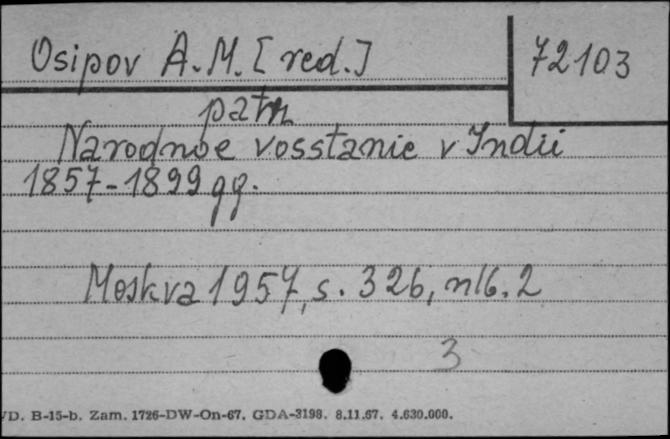 Osipov A.M. [red.]
72103
patrz
Narodnoe vosstanie v Indii
1857-1899 gg.
Moskva 1957, s. 326, nlb. 2
3
VD. B-15-b. Zam. 1726-DW-On-67. GDA-3198. 8.11.67. 4.630.000.